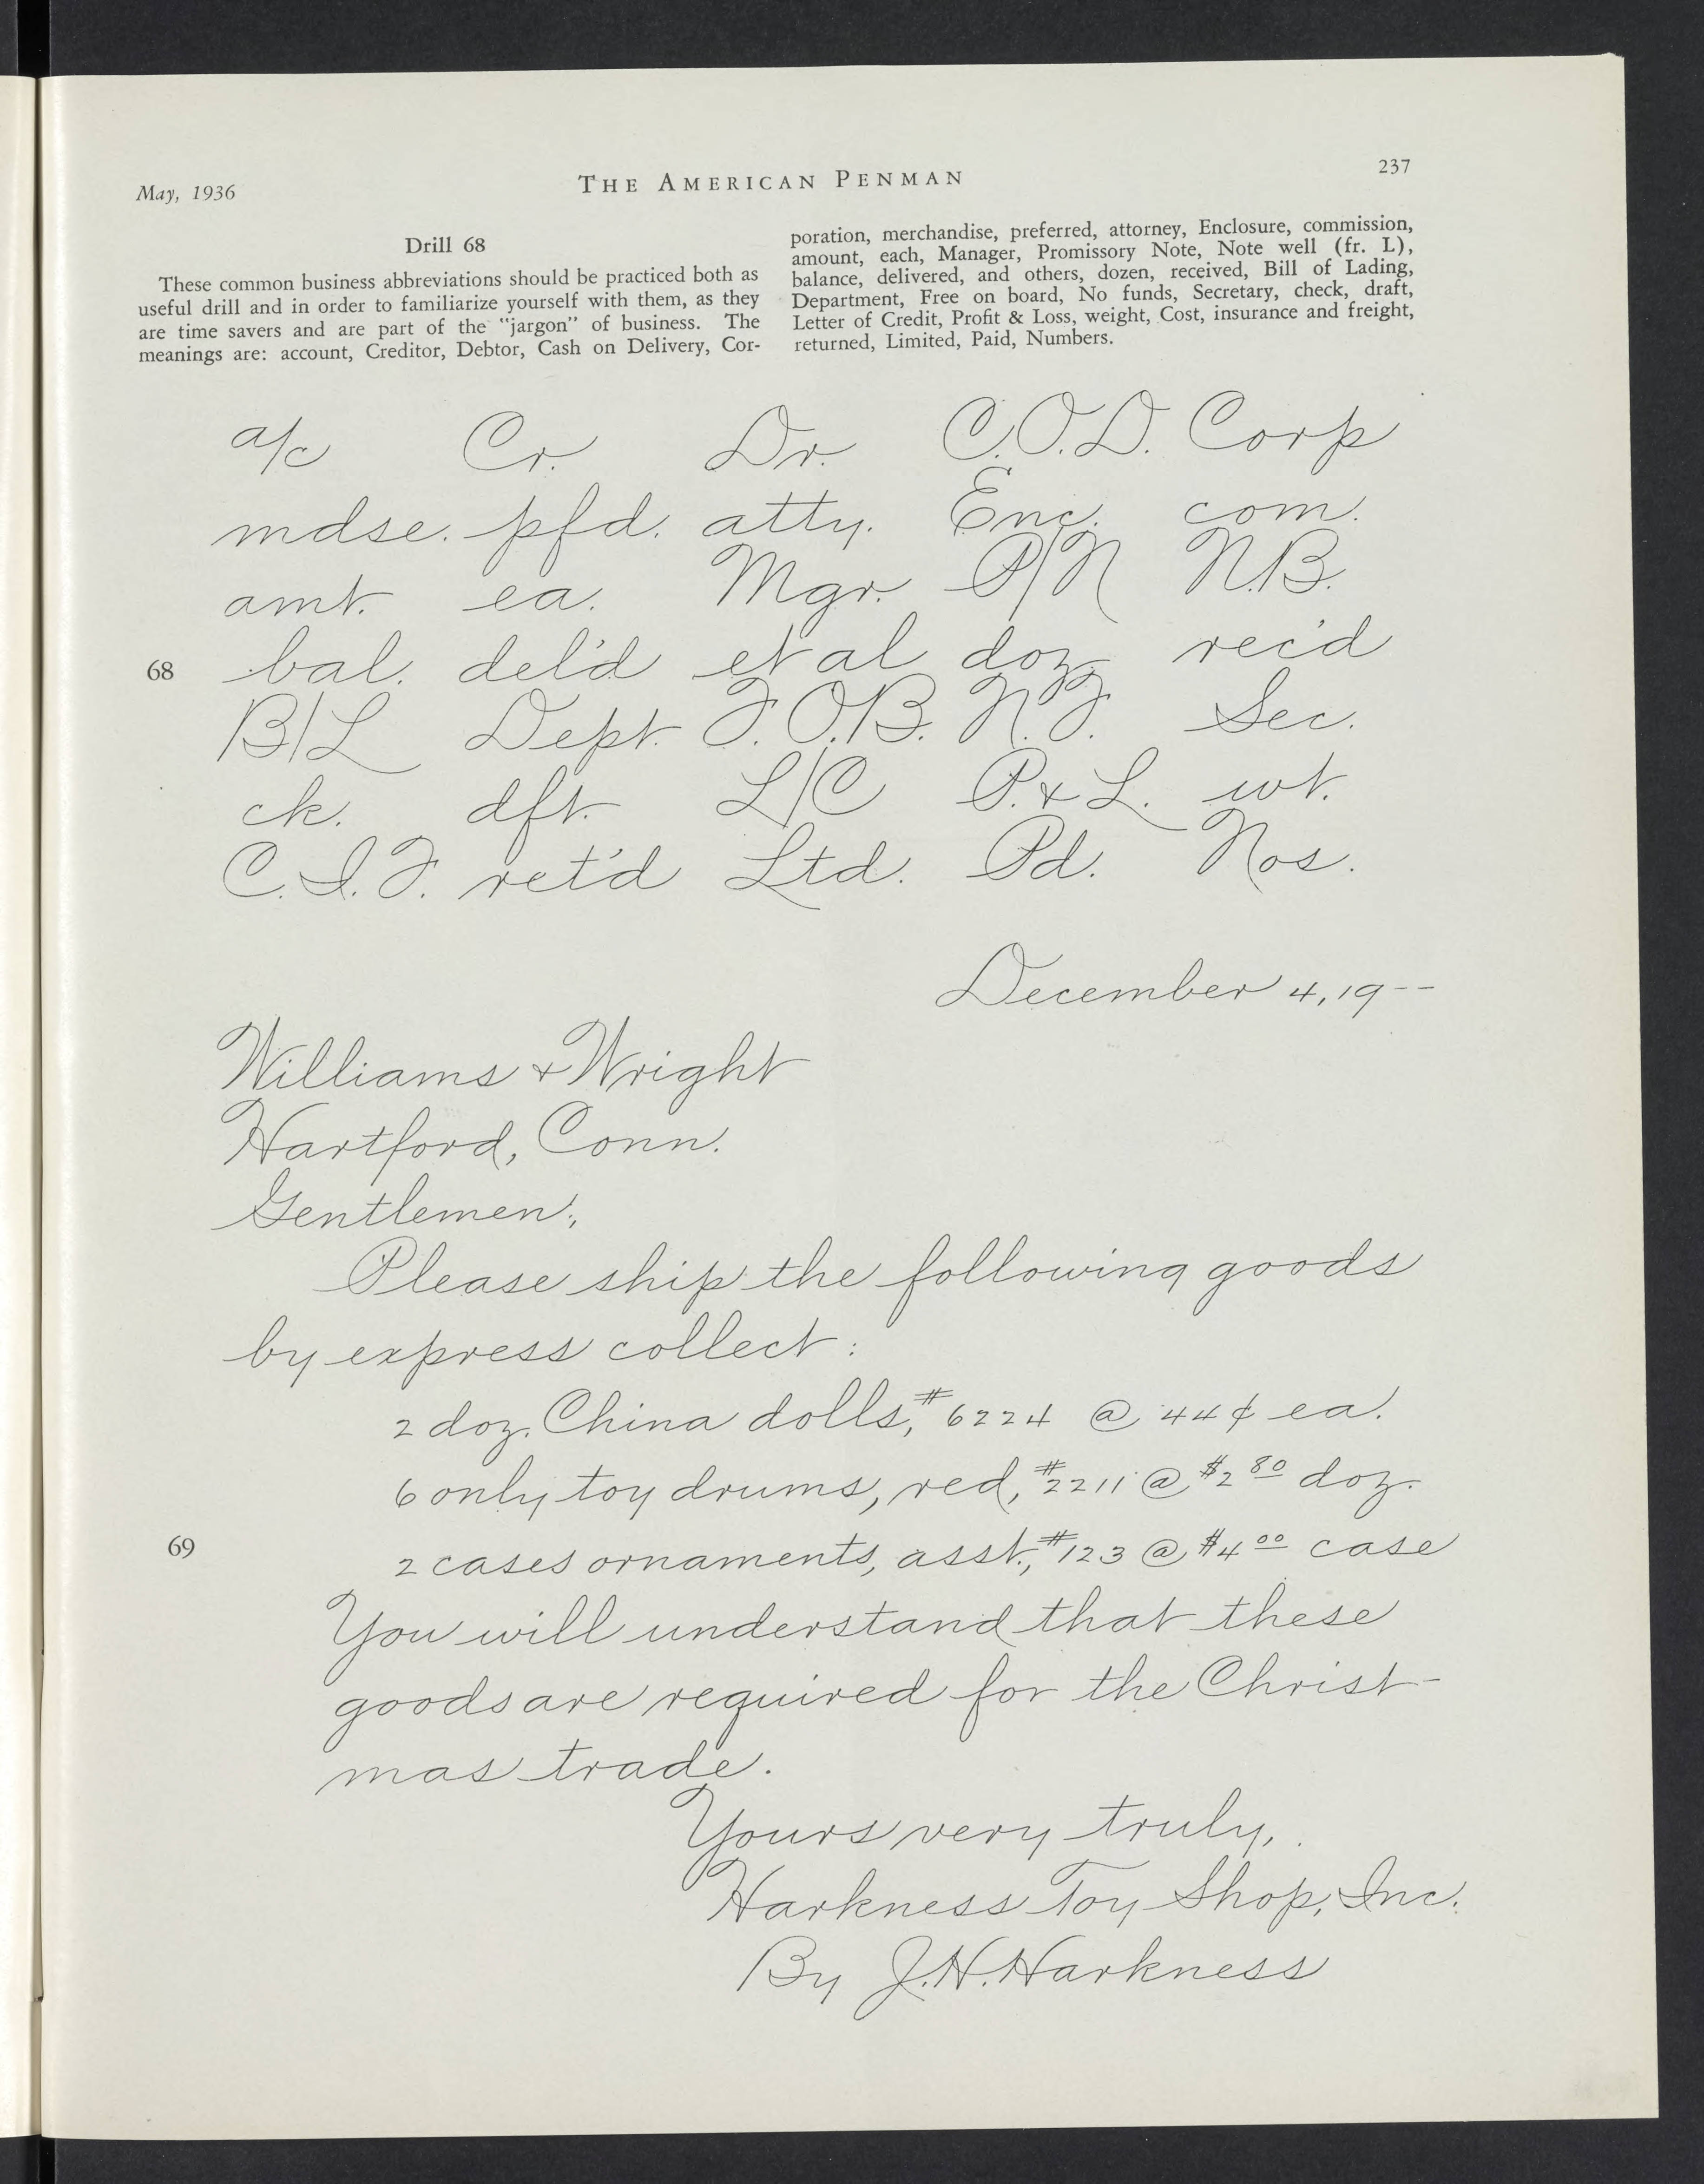 May, 1936
THE AMERICAN PENMAN
237
Drill 68
These common business abbreviations should be practiced both as
useful drill and in order to familiarize yourself with them, as they
are time savers and are part of the "jargon" of business. The
meanings are: account, Creditor, Debtor, Cash on Delivery, Cor-
poration, merchandise, preferred, attorney, Enclosure, commission,
amount, each, Manager, Promissory Note, Note well (fr. L),
balance, delivered, and others, dozen, received, Bill of Lading,
Department, Free on board, No funds, Secretary, check, draft,
Letter of Credit, Profit & Loss, weight, Cost, insurance and freight,
returned, Limited, Paid, Numbers.
a/c Cr. Dr. C.O.D. Corp
mdse. pfd. atty. Enc. com.
amt. ea. Mgr. P/N N.B.
68 bal. del'd et al doz. rec'd
B/L Dept. F.O.B. N.F. Sec.
ck. dft. L/C P. & L. wt.
C.I.F. ret'd Ltd. Pd. Nos.
December 4, 19--
Williams & Wright
Hartford, Conn.
Gentlemen:,
Please ship the following goods
by express collect:
2 doz. China dolls, #6224 @ 44¢ ea.
6 only toy drums, red, #2211 @ $2 80 doz.
69 2 cases ornaments, asst., #123 @ $4 00 case
You will understand that these
goods are required for the Christ-
mas trade.
Yours very truly,
Harkness Toy Shop, Inc.
By J.H. Harkness